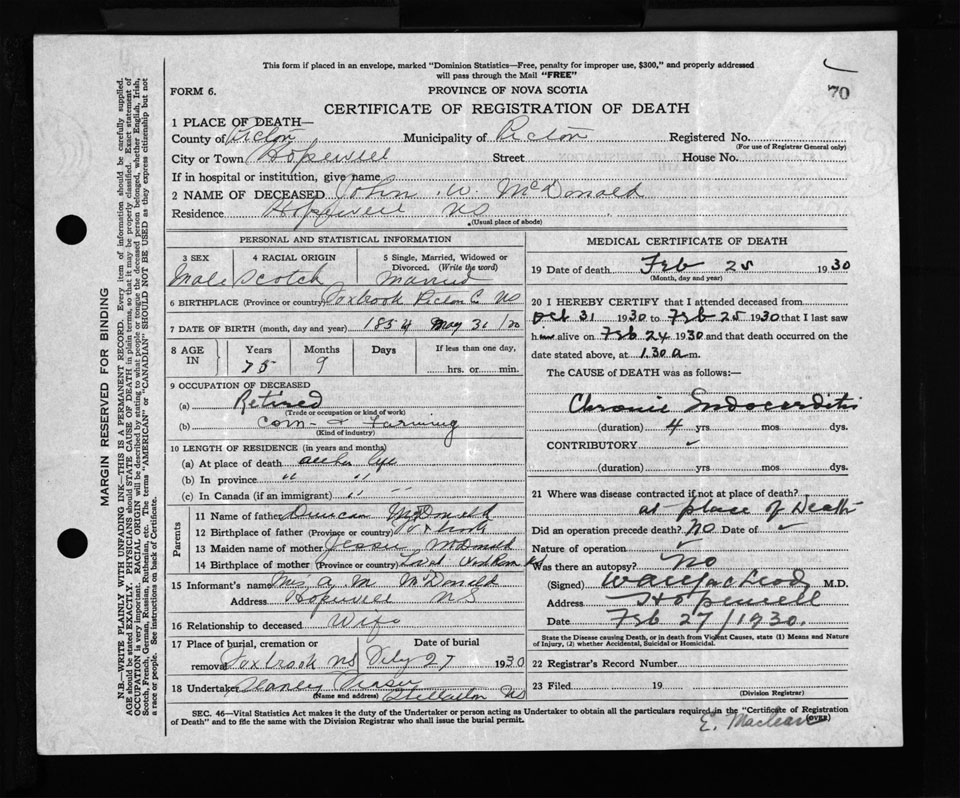 This form if placed in an envelope, marked "Dominion Statistics—Free, penalty for improper use, $300," and properly addressed
will pass through the Mail "FREE"
70
FORM 6.
PROVINCE OF NOVA SCOTIA
CERTIFICATE OF REGISTRATION OF DEATH
1 PLACE OF DEATH—
County of Pictou Municipality of Pictou Registered No.
(For use of Registrar General only)
City or Town Hopewell Street House No.
If in hospital or institution, give name
2 NAME OF DECEASED John W. McDonald
Residence Hopewell NS
(Usual place of abode)
PERSONAL AND STATISTICAL INFORMATION
3 SEX 4 RACIAL ORIGIN 5 Single, Married, Widowed or
Divorced. (Write the word)
Male Scotch Married
6 BIRTHPLACE (Province or country) Foxbrook Pictou C NS
7 DATE OF BIRTH (month, day and year) 1854 May 31
8 AGE IN Years Months Days If less than one day,
75 9 hrs. or min.
9 OCCUPATION OF DECEASED
(a) Retired
(Trade or occupation or kind of work)
(b) Farming
(Kind of industry)
10 LENGTH OF RESIDENCE (in years and months)
(a) At place of death all his life
(b) In province " "
(c) In Canada (if an immigrant) " "
Parents
11 Name of father Duncan McDonald
12 Birthplace of father (Province or country)
13 Maiden name of mother Jessie McDonald
14 Birthplace of mother (Province or country)
15 Informant's name Mrs. A. M McDonald
Address Hopewell NS
16 Relationship to deceased Wife
17 Place of burial, cremation or Date of burial
removal Foxbrook NS Feby 27 1930
18 Undertaker Stanley Fraser
(Name and address) Stellarton NS
MEDICAL CERTIFICATE OF DEATH
19 Date of death Feb 25 1930
(Month, day and year)
20 I HEREBY CERTIFY that I attended deceased from
Oct 31 1930 to Feb 25 1930 that I last saw
him alive on Feb 24 1930 and that death occurred on the
date stated above, at 1.30 a.m.
The CAUSE of DEATH was as follows:—
Chronic Endocarditis
(duration) 4 yrs mos dys.
CONTRIBUTORY
(duration) yrs mos dys.
21 Where was disease contracted if not at place of death?
at place of Death
Did an operation precede death? No Date of
Nature of operation
Was there an autopsy? No
(Signed) M.D.
Address Hopewell
Date Feb 27/1930.
State the Disease causing Death, or in death from Violent Causes, state (1) Means and Nature
of Injury, (2) whether Accidental, Suicidal or Homicidal.
22 Registrar's Record Number
23 Filed 19
(Division Registrar)
SEC. 46—Vital Statistics Act makes it the duty of the Undertaker or person acting as Undertaker to obtain all the particulars required in the "Certificate of Registration
of Death" and to file the same with the Division Registrar who shall issue the burial permit.
(OVER)
E. Maclean
MARGIN RESERVED FOR BINDING
N.B.—WRITE PLAINLY WITH UNFADING INK—THIS IS A PERMANENT RECORD. Every item of information should be carefully supplied.
AGE should be stated EXACTLY. PHYSICIANS should STATE CAUSE OF DEATH in plain terms, so that it may be properly classified. Exact statement of
OCCUPATION is very important. RACIAL ORIGIN will be described by stating to what people or tongue the deceased person belonged, whether English, Irish,
Scotch, French, German, Russian, Ruthenian, etc. The terms "AMERICAN" or "CANADIAN" SHOULD NOT BE USED as they express citizenship but not
a race or people. See instructions on back of Certificate.